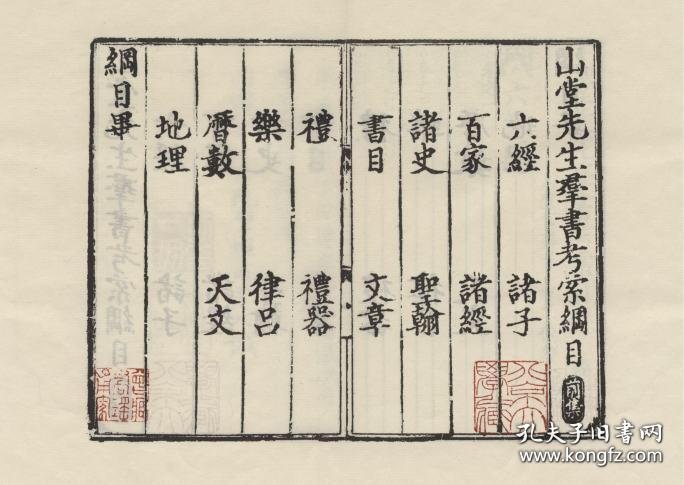 山堂先生羣書考索綱目 前集
六經 諸子
百家 諸經
諸史 聖翰
書目 文章
禮 禮器
樂 律吕
曆數 天文
地理
綱目畢
孔夫子旧书网
www.kongfz.com